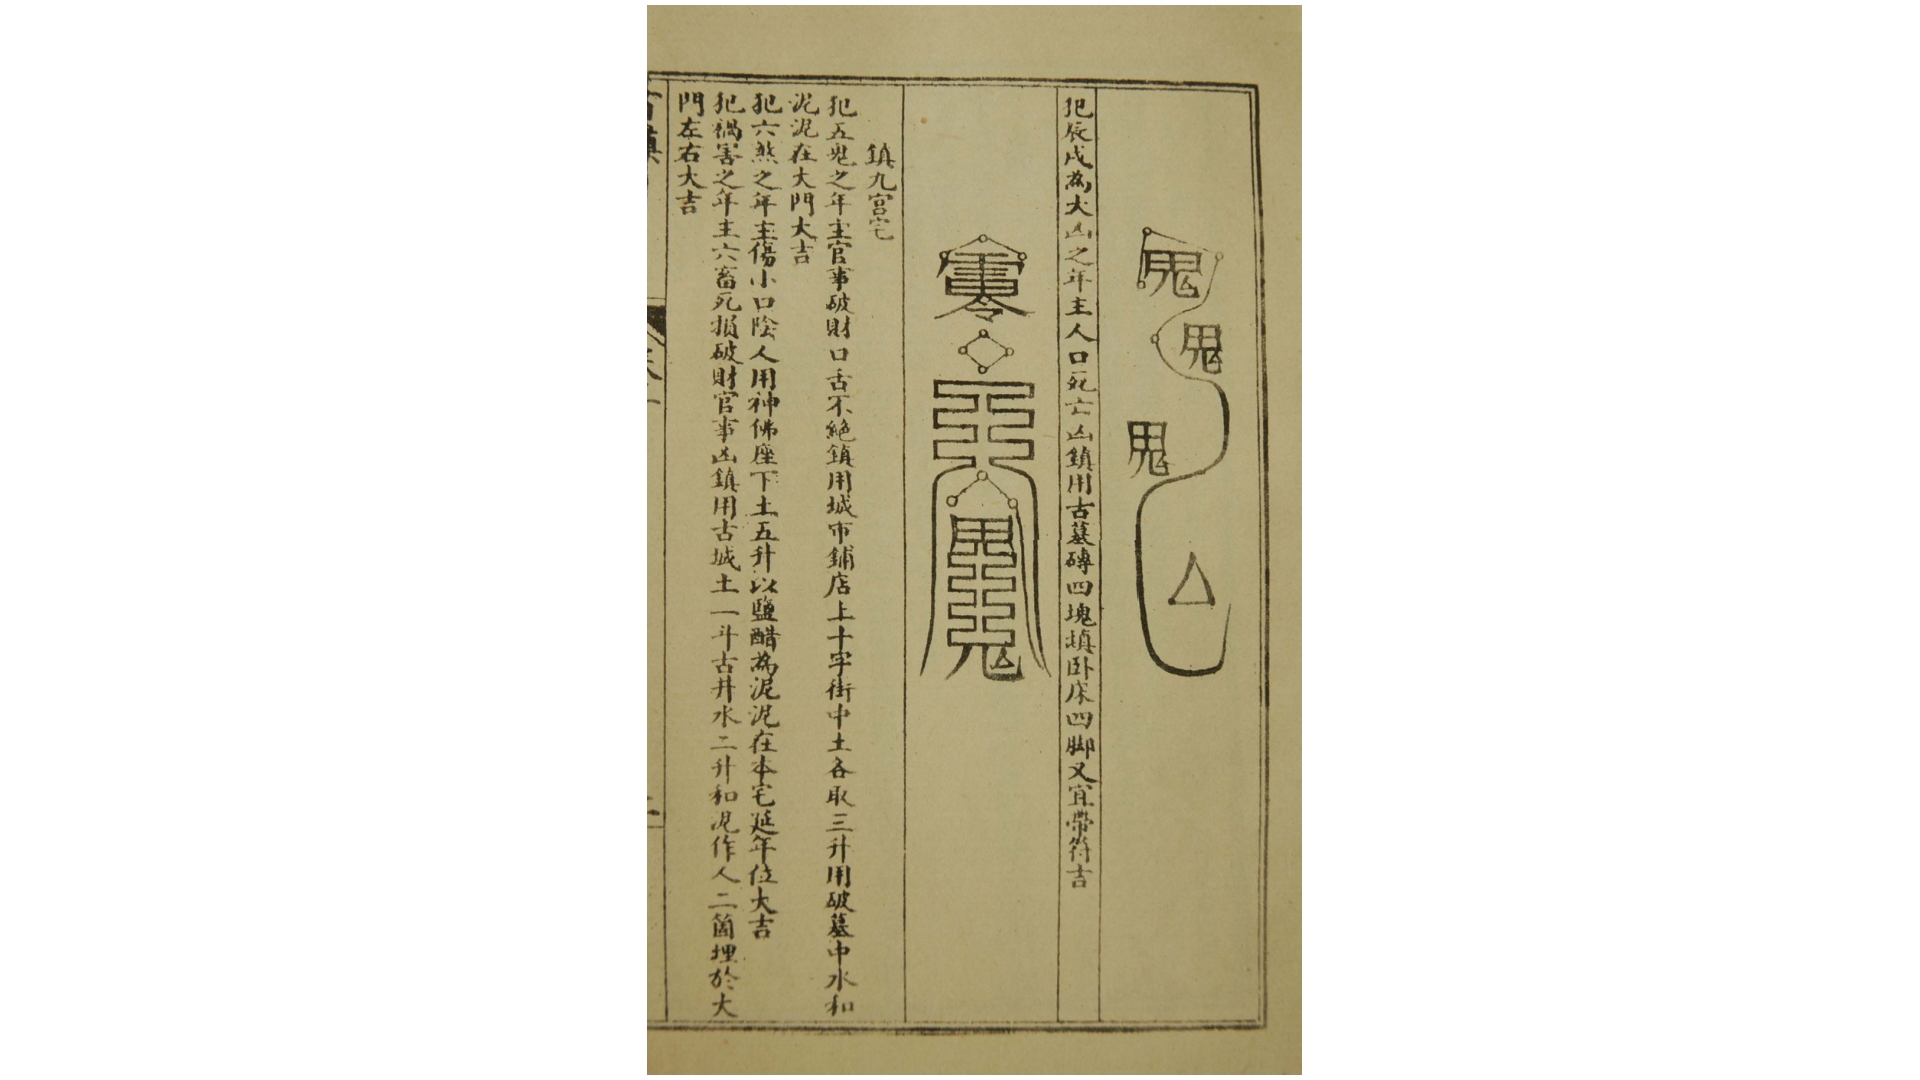 鬼
鬼
鬼
犯辰戌為大凶之年主人口死亡凶鎮用古墓磚四塊填卧床四脚又宜帶符吉
鎮九宮宅
犯五鬼之年主官事破財口舌不絶鎮用城市鋪店上十字街中土各取三升用破墓中水和
泥泥在大門大吉
犯六煞之年主傷小口陰人用神佛座下土五升以鹽醋為泥泥在本宅延年位大吉
犯禍害之年主六畜死損破財官事凶鎮用古城土一斗古井水二升和泥作人二箇埋於大
門左右大吉